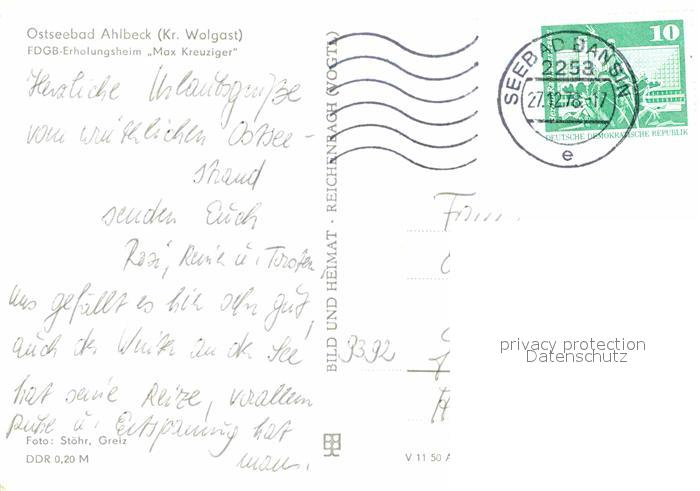 Ostseebad Ahlbeck (Kr. Wolgast)
FDGB-Erholungsheim „Max Kreuziger“
Herzliche Urlaubsgrüße
vom winterlichen Ostsee-
strand
senden Euch
Rosi, Reiner u. Torsten,
uns gefällt es hier sehr gut,
auch der Winter an der See
hat seine Reize, vorallem
Ruhe u. Entspannung hat
man.
Foto: Stöhr, Greiz
DDR 0,20 M
BILD UND HEIMAT · REICHENBACH (VOGTL)
V 11 50 A
9392
10
DEUTSCHE DEMOKRATISCHE REPUBLIK
SEEBAD BANSIN
2253
27.12.78-17
e
privacy protection
Datenschutz